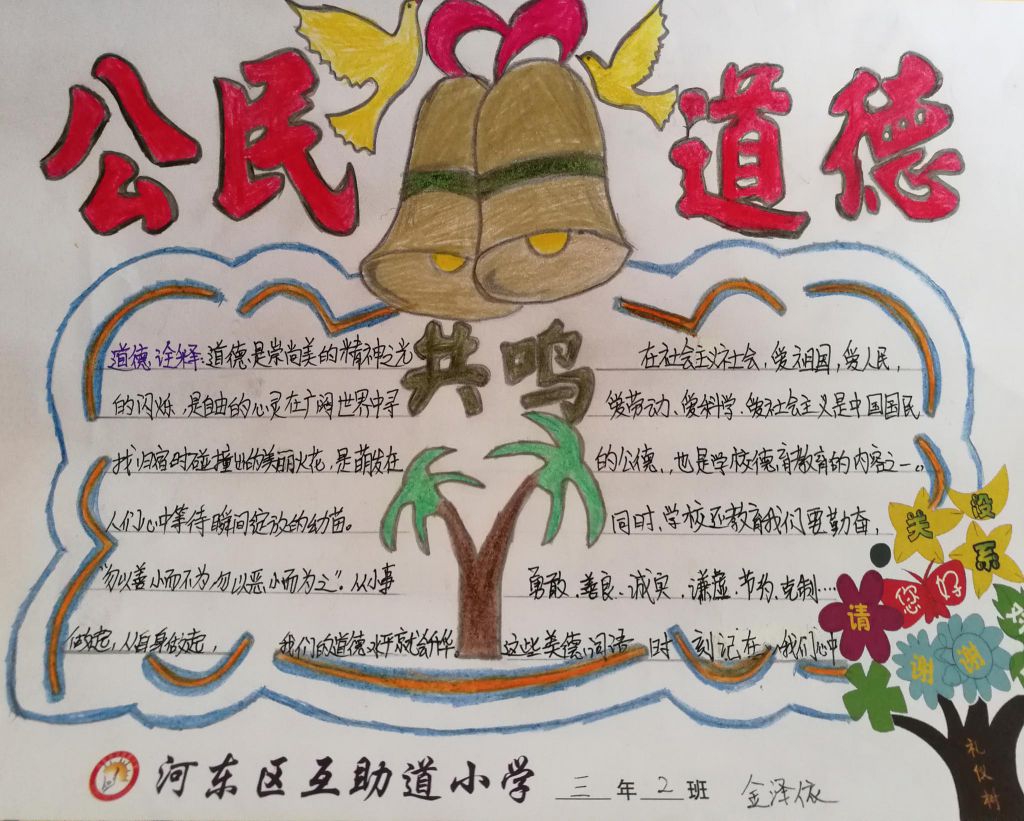 公民道德
共鸣
道德诠释:道德是崇尚美的精神之光
的闪烁,是自由的心灵在广阔世界中寻
找归宿时碰撞出的美丽火花,是萌发在
人们心中等待瞬间绽放的幼苗。
"勿以善小而不为勿以恶小而为之"。从小事
做起,从自身做起,我们的道德水平就会升华。
在社会主义社会,爱祖国,爱人民,
爱劳动、爱科学、爱社会主义是中国国民
的公德、,也是学校德育教育的内容之一。
同时,学校还教育我们要勤奋,
勇敢、善良、诚实,谦虚、节约、克制……
这些美德词语时刻记在我们心中
没关系
您好
请
谢谢
礼仪树
河东区互助道小学 三年2班 金泽依